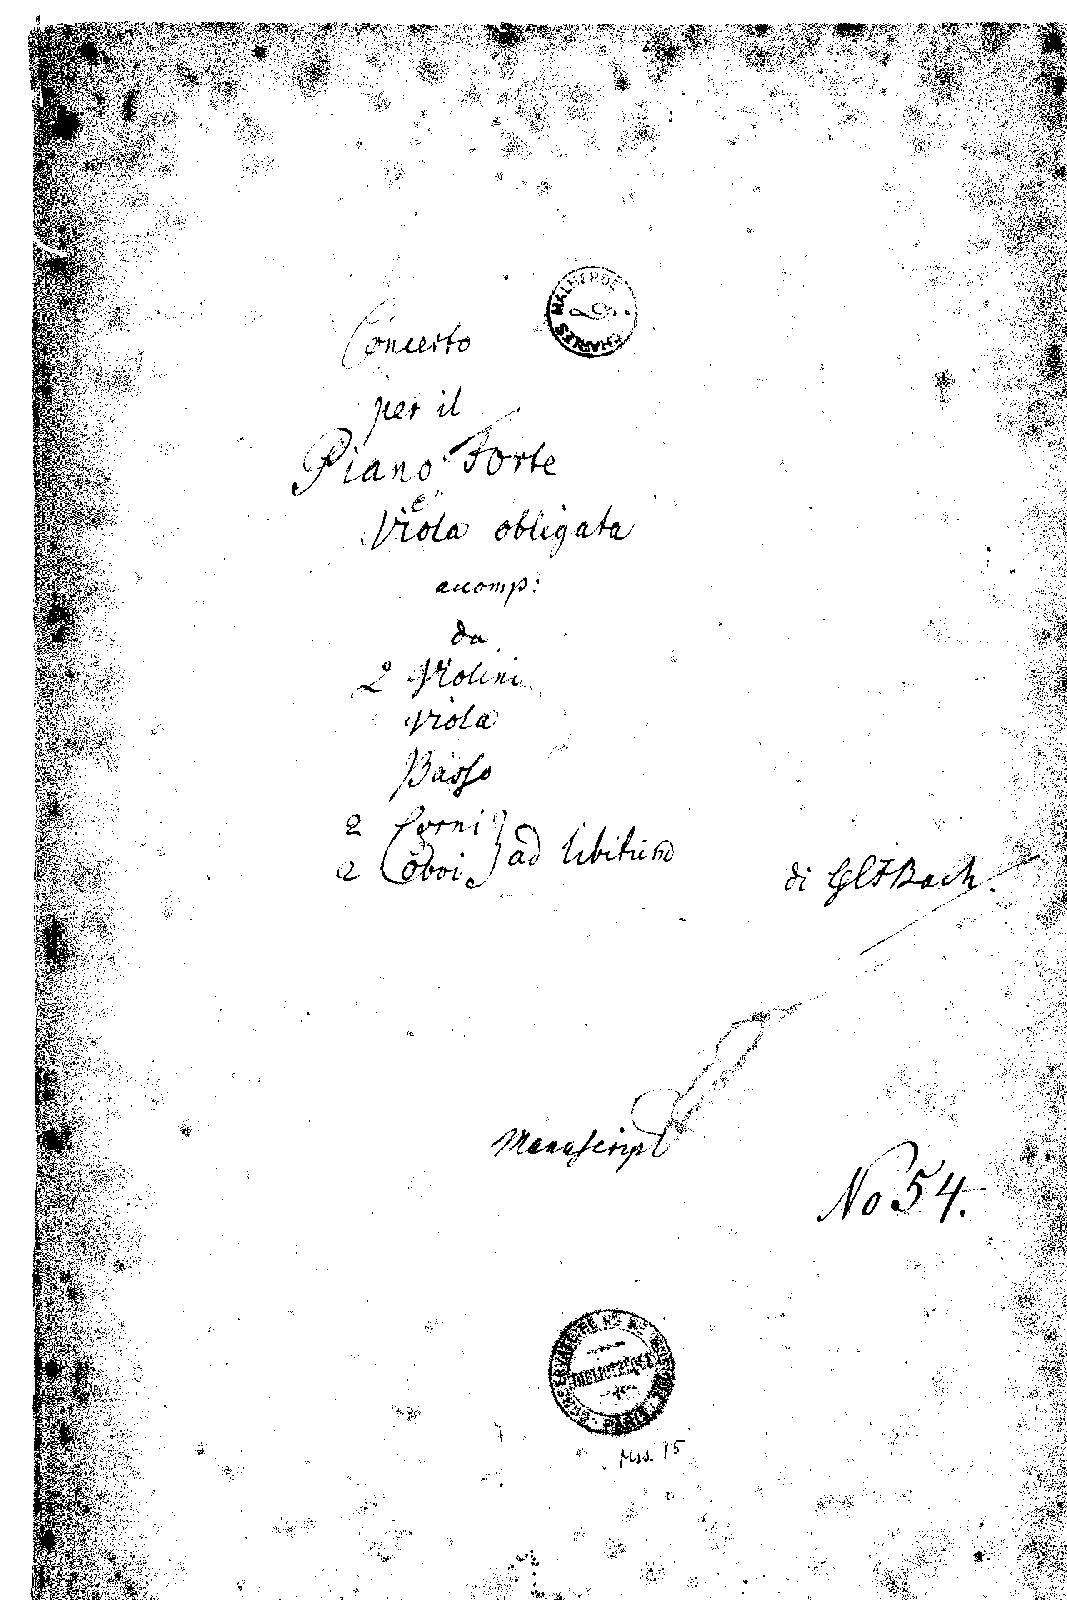 Concerto
CHARLES MALHERBE
per il
Piano Forte
e
Viola obligata
accomp:
da
2 Violini
Viola
Basso
2 Corni
2 Oboi ad libitum
di GlFBach.
Manuscript
No 54.
BIBLIOTHÈQUE
PARIS
Mss. 15